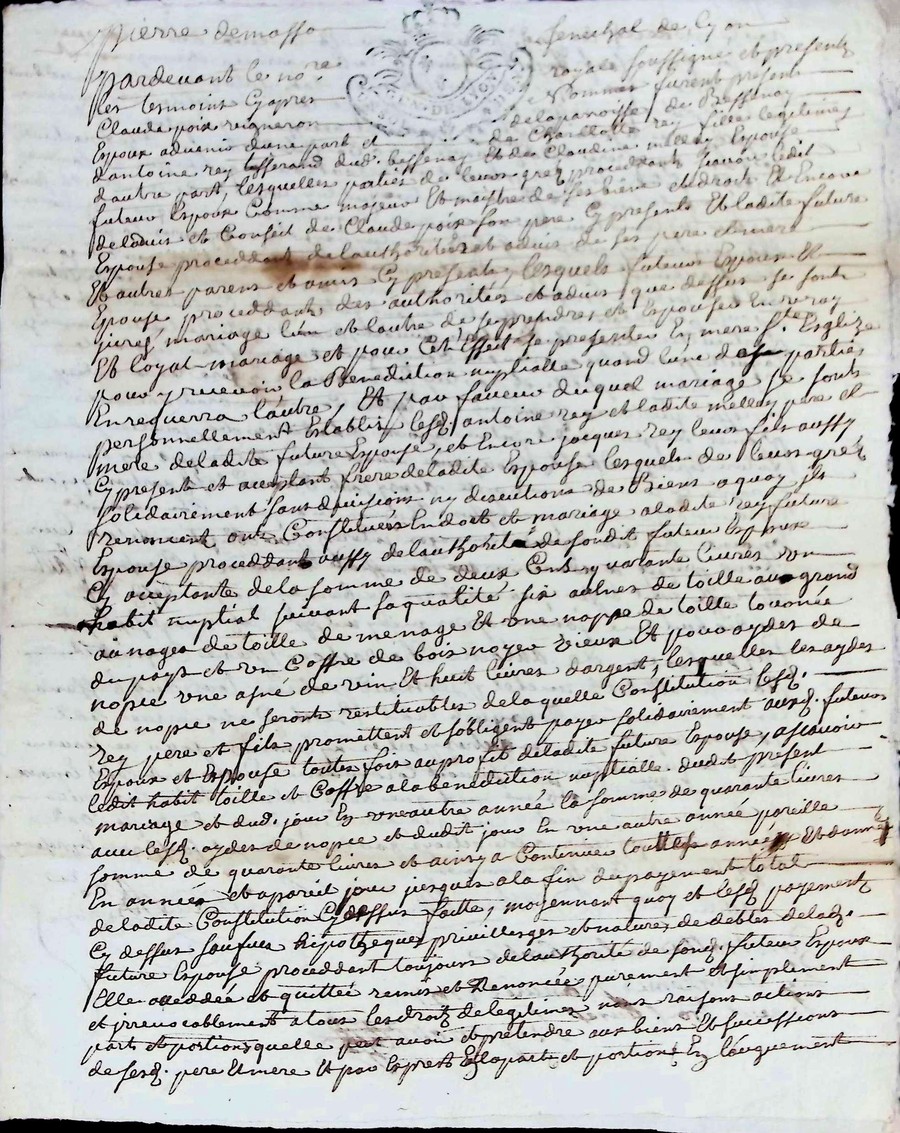 pierre demasso senechal de Lyon
pardevant le no.re royal soussigné et presents
les tesmoins Cyapres Nommes furent present
Claude poix vigneron delaparroisse de Bessenay
Espoux advenir dune part et de Charllotte rey fille legitimes
dantoine rey tisserand dud. bessenay et de Claudine mellay Espouse
dautre part, lesquelles parties de leurs gréz proceddants scavoir ledit
futeur Espoux Comme majeur Et maistre de ses biens et droits Et Encore
deladvis et Conseil de Claude poix son pere Cy presents Et ladite future
Espouse proceddant de lauthoritéz et advis de ses pere et mere
Et autres parens et amis Cy presents, lesquels futeurs Espoux Et
Epouse proceddants des authoritéz et advis que dessus se sont
jurés mariage lun et lautre de se prendres et Espouser En vray
Et loyal mariage et pour Cét Effect se presenter En mere S.te Esglize
pour y recevoir la Benediction nuptialle quand lune des parties
En requerra lautre, Et pour faveur duquel mariage se sont
personnellement Establis lesd. antoine rey et ladite mellay pere et
mere deladite future Espouse, et Encore jacques rey leur fils aussy
Cy present et aceptant frere deladite Espouse lesquels de leurs gréz
solidairement sans divisions ny discutions de Biens a quoy ils
renoncent ont Constituées En dot et mariage aladite rey future
Espouse proceddant aussy delauthorité de sondit futeur Espoux
Cy aceptante dela somme de deux Cents quarante livres un
habit nuptial suivant sa qualité six aulnes de toille au grand
aunages de toille de menage Et une nappe de toille
du pays et un Coffre de bois noyer vieux Et pour aydes de
nopce une asné de vin Et huit livres dargent, lesquelles les aydes
de nopce ne seront restituables de laquelle Constitution lesd.
rey pere et fils promettent et sobligent payer solidairement ausd. futeurs
Espoux et Espouse toutefois au profit deladite future Espouse, ascavoir
ledit habit toille et Coffre ala benediction nuptialle dudit present
mariage et dud. jour En une autre année la somme de quarante livres
avec lesd. aydes de nopce et dudit jour En une autre année pareille
somme de quarante livres et ainsy a Continuer touttes années Et
En année et apareil jour jusques ala fin du payement total
deladite Constitution Cy dessus faitte, moyennant quoy et lesd. payement
Cy dessus saufves hipotheques privilleges et natures de debtes deladt.
future Espouse proceddant toujours delauthorité de sond. futeur Espoux
Elle a ceddée et quittée remis et Renoncée purement et simplement
et irrevocablement a tous les droits de legitimes noms raisons actions
parts et portions quelle peut avoir et pretendre aux biens Et successions
de sesd. pere Et mere Et par Exprest Ez la part et portion En laugmement